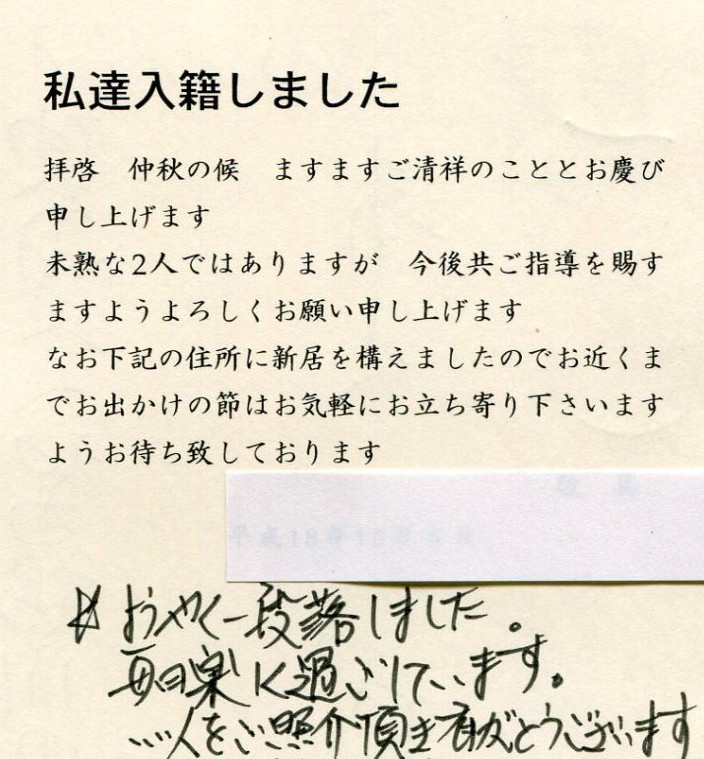 私達入籍しました
拝啓　仲秋の候　ますますご清祥のこととお慶び
申し上げます
未熟な2人ではありますが　今後共ご指導を賜す
ますようよろしくお願い申し上げます
なお下記の住所に新居を構えましたのでお近くま
でお出かけの節はお気軽にお立ち寄り下さいます
ようお待ち致しております
敬　具
平成18年10月
ようやく一段落しました。
毎日楽しく過ごしています。
人をご照介頂き有がとうございます